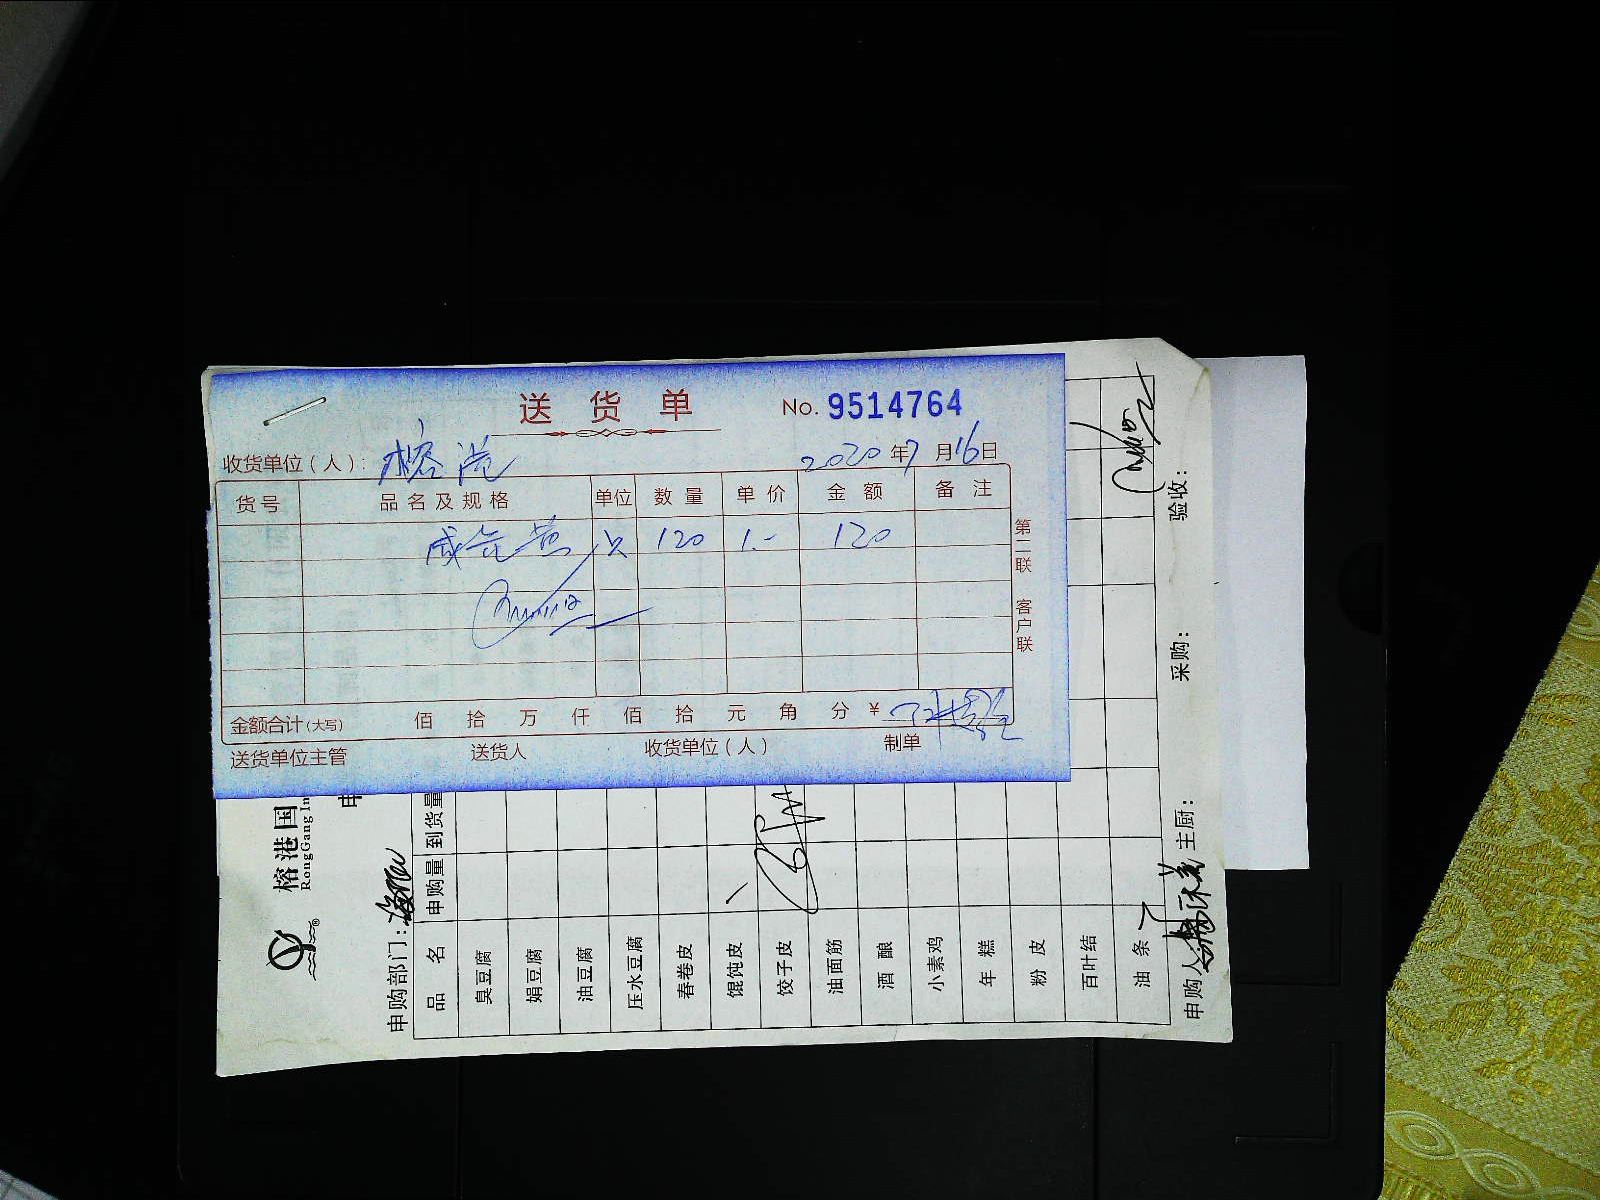 送货单
No. 9514764
收货单位(人): 榕港
2020年7月16日
货号 品名及规格 单位 数量 单价 金额 备注
只 120 1.- 120
第二联 客户联
金额合计(大写) 佰 拾 万 仟 佰 拾 元 角 分 ¥
送货单位主管 送货人 收货单位(人) 制单
榕港国
RongGang In
®
申
申购部门:
品名 申购量 到货量
臭豆腐
娟豆腐
油豆腐
压水豆腐
春卷皮
馄饨皮
饺子皮
油面筋
酒酿
小素鸡
年糕
粉皮
百叶结
油条
申购人: 主厨: 采购: 验收: